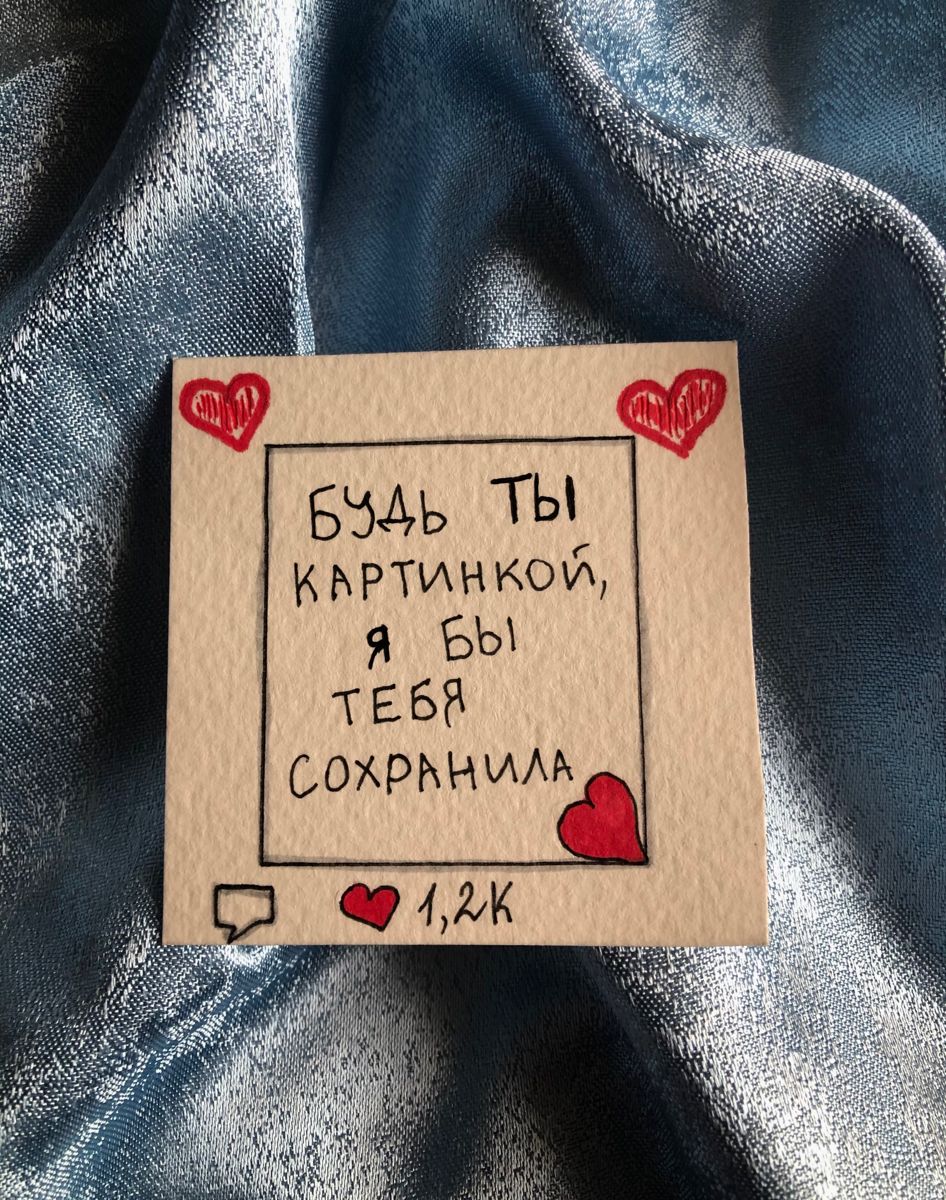 БУДЬ ТЫ
КАРТИНКОЙ,
Я БЫ
ТЕБЯ
СОХРАНИЛА
1,2К